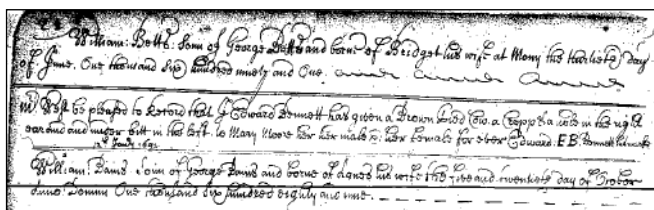 William: Betts: Sonn of George Betts and borne of Bridget his wife at Mony the day
of June. One thousand six hundred ninety and One.
West be pleased to Record that I Edward Bennett has given a Brown Cow. a Cropp & a hole in the right
ear and and under bitt in the left to Mary Moore her her male & her female for ever Edward. E B. Bennett his mark
169
William: Danis: Sonn of George Danis and borne of Agnes his wife the five and twentyeth day of October
Anno Domini One thousand six hundred eighty and nine.